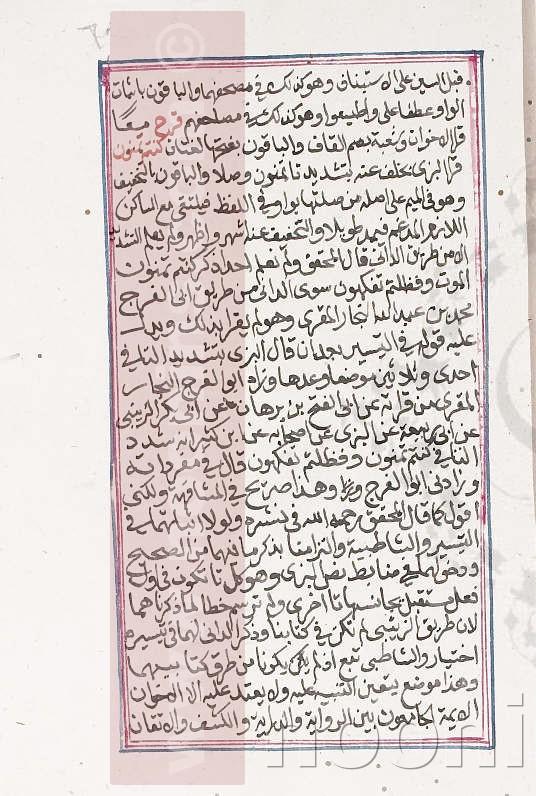 قبل السين على الاستيناف وهو كذلك في مصحفهما والباقون باثبات
الواو عطفا على واطيعوا وهو كذلك في مصاحفهم قرح معا
قرا الاخوان وشعبة بضم القاف والباقون بفتحها لغتان كنتم تمنون
قرا البزى بخلف عنه بتشديد تا تمنون وصلا والباقون بالتخفيف
وهو في الميم على اصله من صلتها بواو في اللفظ فيلتقي مع الساكن
اللازم المدغم فيمد طويلا والتخفيف عنه اشهر واظهر ولم يعلم التشديد
الا من طريق الداني قال المحقق ولم نعلم احدا ذكر كنتم تمنون
الموت وفظلتم تفكهون سوى الداني من طريق ابى الفرج
محمد بن عبد الله النجار المقرى وهو لم يقرا بذلك ويدل
عليه قوله في التيسير بعد ان قال البزى بتشديد التا في
احدى وثلاثين موضعا وعدها وزاد ابو الفرج النجار
المقرى من قراته عن ابى الفتح بن برهان عن ابى بكر الزينبى
عن ابى ربيعة عن البزى عن اصحابه عن ابن كثير انه شدد
التا في كنتم تمنون وفظلتم تفكهون وقال في مفرداته
وزادنى ابو الفرج وهذا صريح في المشافهة ولكنى
اقول كما قال المحقق رحمه الله في نشره ولولا اثباتهما في
التيسير والشاطبية والتزامنا بذكر ما فيهما من الصحيح
ودخولهما في ضابط نص البزى وهو كل تا تكون في اول
فعل مستقبل يحاسنها تا اخرى ولم ترسم خطا لما ذكرناهما
لان طريق الزينبى لم تكن في كتابنا وذكر الدانى لهما في تيسيره
اختيار والشاطبى تبع اذ لم يكونا من طرق كتابيهما
وهذا موضع يتعين التنبيه عليه ولا يهتدى اليه الا الاخوان
الايمة الجامعون بين الرواية والدراية والكشف والاتقان
noon